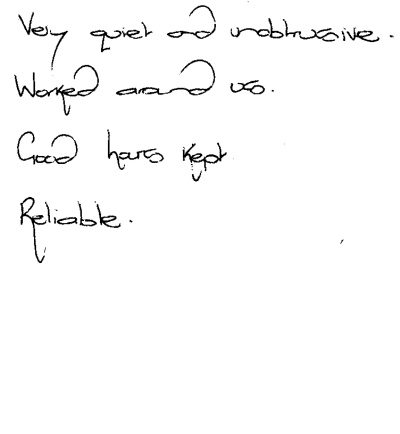 Very quiet and unobtrusive.
Worked around us.
Good hours kept
Reliable.